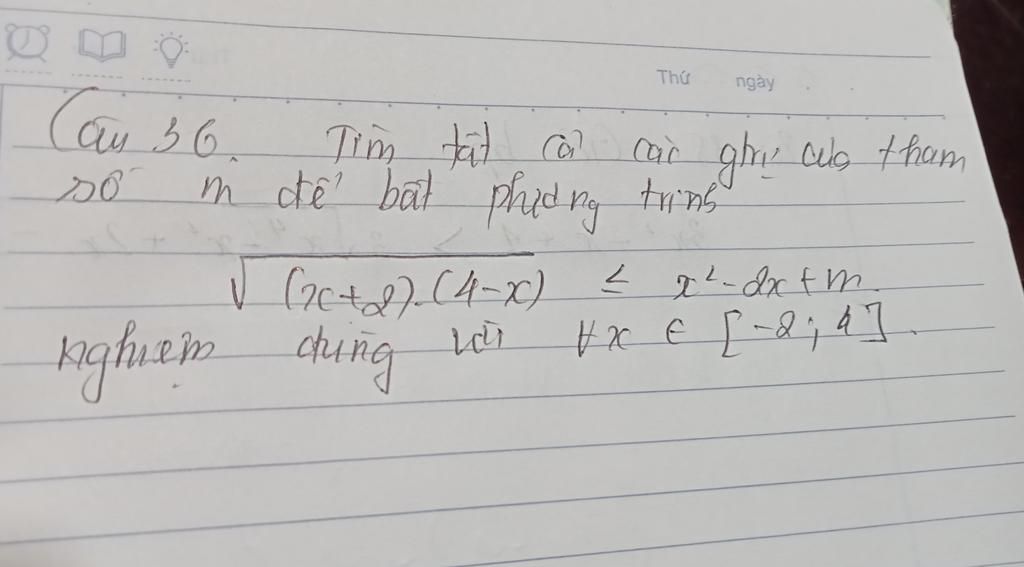 Thứ ngày
Câu 36. Tìm tất cả các gtrị của tham
số m để bất phương trình
√(x+2).(4-x) ≤ x²-2x+m
nghiệm đúng với ∀x ∈ [-2; 4].